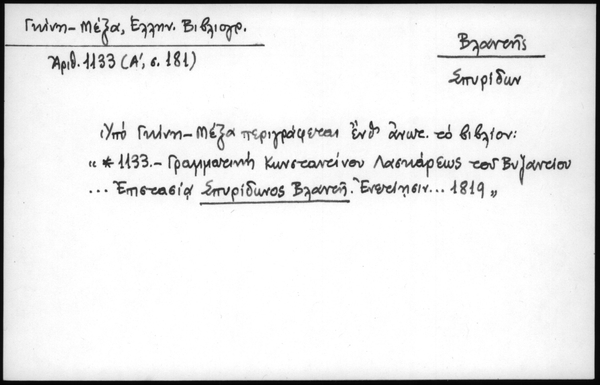 Γκίνη-Μέξα, Ἑλλην. Βιβλιογρ.
Ἀριθ. 1133 (Α', σ. 181)
Βλαντῆς
Σπυρίδων
Ὑπό Γκίνη-Μέξα περιγράφεται ἔνθ' ἀνωτ. τό βιβλίον:
" * 1133.- Γραμματική Κωνσταντίνου Λασκάρεως τοῦ Βυζαντίου
... Ἐπιστασίᾳ Σπυρίδωνος Βλαντῆ. Ἐνετίῃσιν... 1819 "